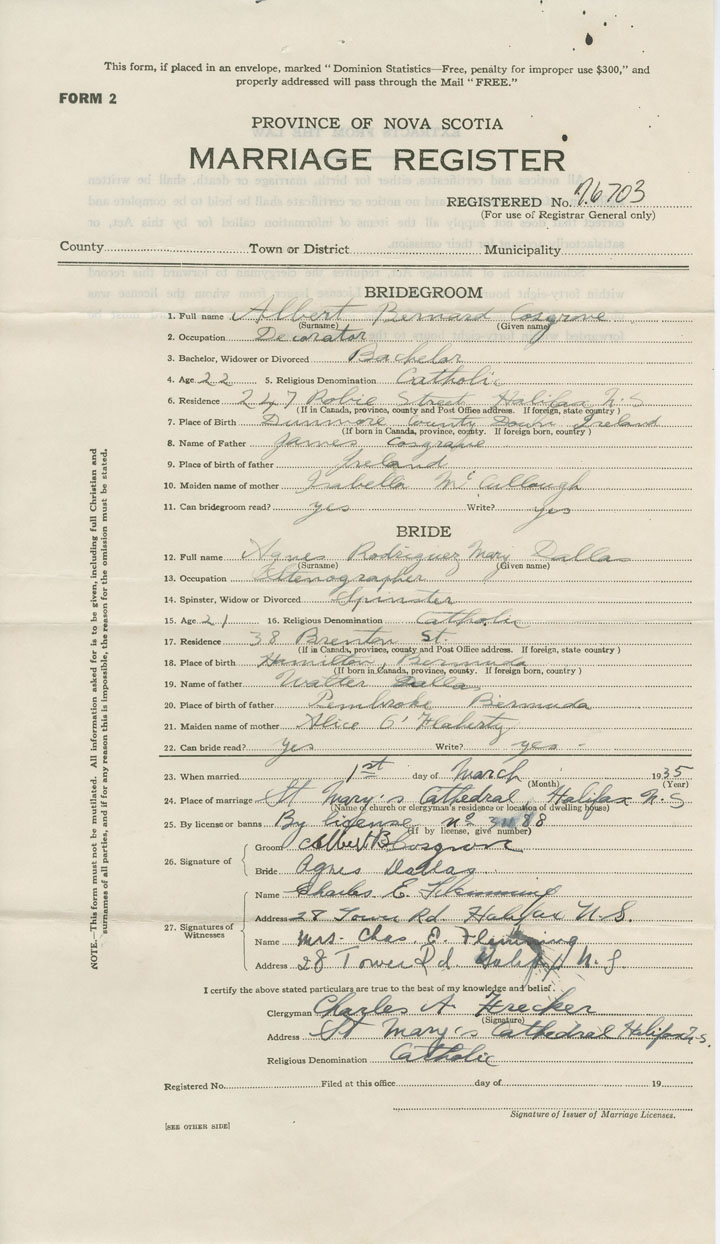 This form, if placed in an envelope, marked "Dominion Statistics—Free, penalty for improper use $300," and
properly addressed will pass through the Mail "FREE."
FORM 2
PROVINCE OF NOVA SCOTIA
MARRIAGE REGISTER
REGISTERED No. 76703
(For use of Registrar General only)
County Town or District Municipality
BRIDEGROOM
1. Full name Albert Bernard Cosgrove
(Surname) (Given name)
2. Occupation Decorator
3. Bachelor, Widower or Divorced Bachelor
4. Age 22 5. Religious Denomination Catholic
6. Residence 247 Robie Street Halifax N.S
(If in Canada, province, county and Post Office address. If foreign, state country)
7. Place of Birth Dunmore County Down Ireland
(If born in Canada, province, county. If foreign born, country)
8. Name of Father James Cosgrave
9. Place of birth of father Ireland
10. Maiden name of mother Isabella McCullough
11. Can bridegroom read? yes Write? yes
BRIDE
12. Full name Agnes Rodriguez Mary Dallas
(Surname) (Given name)
13. Occupation Stenographer
14. Spinster, Widow or Divorced Spinster
15. Age 21 16. Religious Denomination Catholic
17. Residence 38 Brenton St.
(If in Canada, province, county and Post Office address. If foreign, state country)
18. Place of birth Hamilton, Bermuda
(If born in Canada, province, county. If foreign born, country)
19. Name of father Walter Dallas
20. Place of birth of father Pembroke Bermuda
21. Maiden name of mother Alice O'Flaherty
22. Can bride read? yes Write? yes
23. When married 1st day of March 1935
(Month) (Year)
24. Place of marriage St Mary's Cathedral, Halifax N.S
(Name of church or clergyman's residence or location of dwelling house)
25. By license or banns By license no
(If by license, give number)
26. Signature of
Groom Albert B Cosgrove
Bride Agnes Dallas
27. Signatures of Witnesses
Name Charles E. Flemming
Address 28 Tower Rd Halifax N.S.
Name Mrs. Chas. E. Flemming
Address 28 Tower Rd Halifax N.S.
I certify the above stated particulars are true to the best of my knowledge and belief.
Clergyman Charles A Frecker
(Signature)
Address St Mary's Cathedral Halifax N.S.
Religious Denomination Catholic
Registered No. Filed at this office day of 19
Signature of Issuer of Marriage Licenses.
[SEE OTHER SIDE]
NOTE.—This form must not be mutilated. All information asked for is to be given, including full Christian and
surnames of all parties, and if for any reason this is impossible, the reason for the omission must be stated.